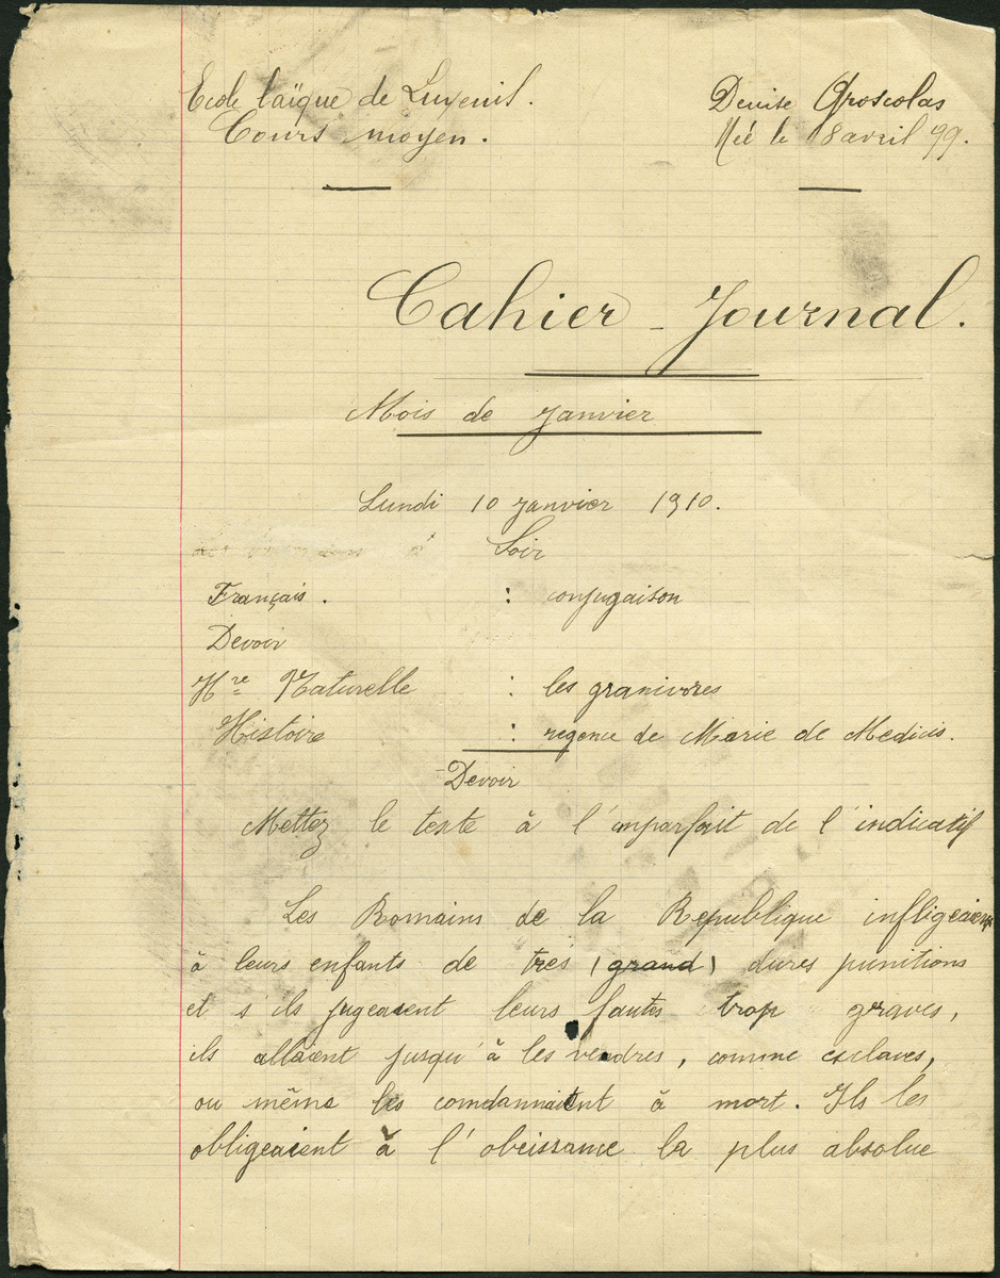 Ecole laïque de Luxeuil.
Denise Groscolas
Cours moyen.
Née le 18 avril 99.
Cahier - Journal.
Mois de janvier
Lundi 10 janvier 1910.
Soir
Français . : conjugaison
Devoir
Hre Naturelle : les granivores
Histoire : regence de Marie de Medicis.
Devoir
Mettez le texte à l'imparfait de l'indicatif
Les Romains de la Republique infligeaient
à leurs enfants de très (grand) dures punitions
et s'ils jugeaient leurs fautes trop graves,
ils allaient jusqu'à les vendres, comme esclaves,
ou même les comdannaient à mort. Ils les
obligeaient à l'obeissance la plus absolue